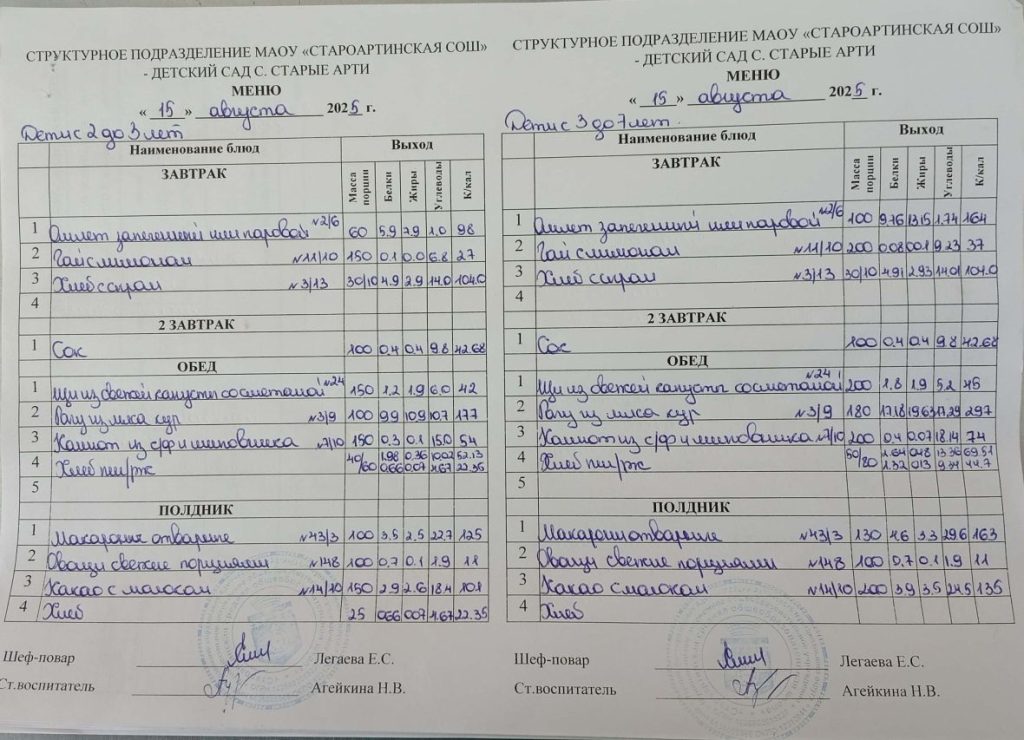 СТРУКТУРНОЕ ПОДРАЗДЕЛЕНИЕ МАОУ «СТАРОАРТИНСКАЯ СОШ»
- ДЕТСКИЙ САД С. СТАРЫЕ АРТИ
МЕНЮ
« 15 » августа 2025 г.
Дети с 2 до 3 лет
Наименование блюд Выход
ЗАВТРАК Масса порции Белки Жиры Углеводы К/кал
1 Омлет запеченный или паровой №2/6 60 5.9 7.9 1.0 98
2 Чай с лимоном №11/10 150 0.1 0.0 6.8 27
3 Хлеб с сыром №3/13 30/10 4.9 2.9 14.0 104.0
4
2 ЗАВТРАК
1 Сок 100 0.4 0.4 9.8 42.68
ОБЕД
1 Щи из свежей капусты со сметаной №24 150 1.2 1.9 6.0 42
2 Рагу из мяса кур №3/9 100 9.9 10.9 10.7 177
3 Компот из с/ф и шиповника №7/10 150 0.3 0.1 15.0 54
4 Хлеб пш/рж 40/60 1.98 0.36 10.02 52.13
0.66 0.07 4.67 22.35
ПОЛДНИК
1 Макароны отварные №43/3 100 3.5 2.5 22.7 125
2 Овощи свежие порциями №148 100 0.7 0.1 1.9 11
3 Какао с молоком №14/10 150 2.9 2.6 18.4 101
4 Хлеб 25 0.66 0.07 4.67 22.35
Шеф-повар Легаева Е.С.
Ст.воспитатель Агейкина Н.В.
СТРУКТУРНОЕ ПОДРАЗДЕЛЕНИЕ МАОУ «СТАРОАРТИНСКАЯ СОШ»
- ДЕТСКИЙ САД С. СТАРЫЕ АРТИ
МЕНЮ
« 15 » августа 2025 г.
Дети с 3 до 7 лет
Наименование блюд Выход
ЗАВТРАК Масса порции Белки Жиры Углеводы К/кал
1 Омлет запеченный или паровой №2/6 100 9.76 13.15 1.74 164
2 Чай с лимоном №11/10 200 0.08 0.01 9.23 37
3 Хлеб с сыром №3/13 30/10 4.91 2.93 14.01 104.0
4
2 ЗАВТРАК
1 Сок 100 0.4 0.4 9.8 42.68
ОБЕД
1 Щи из свежей капусты со сметаной №24 200 1.8 1.9 5.2 45
2 Рагу из мяса кур №3/9 180 17.18 19.63 17.29 297
3 Компот из с/ф и шиповника №7/10 200 0.4 0.07 18.14 74
4 Хлеб пш/рж 50/80 2.64 0.48 13.36 69.51
1.32 0.13 9.34 44.7
5
ПОЛДНИК
1 Макароны отварные №43/3 130 4.6 3.3 29.6 163
2 Овощи свежие порциями №148 100 0.7 0.1 1.9 11
3 Какао с молоком №14/10 200 3.9 3.5 24.5 135
4 Хлеб
Шеф-повар Легаева Е.С.
Ст.воспитатель Агейкина Н.В.